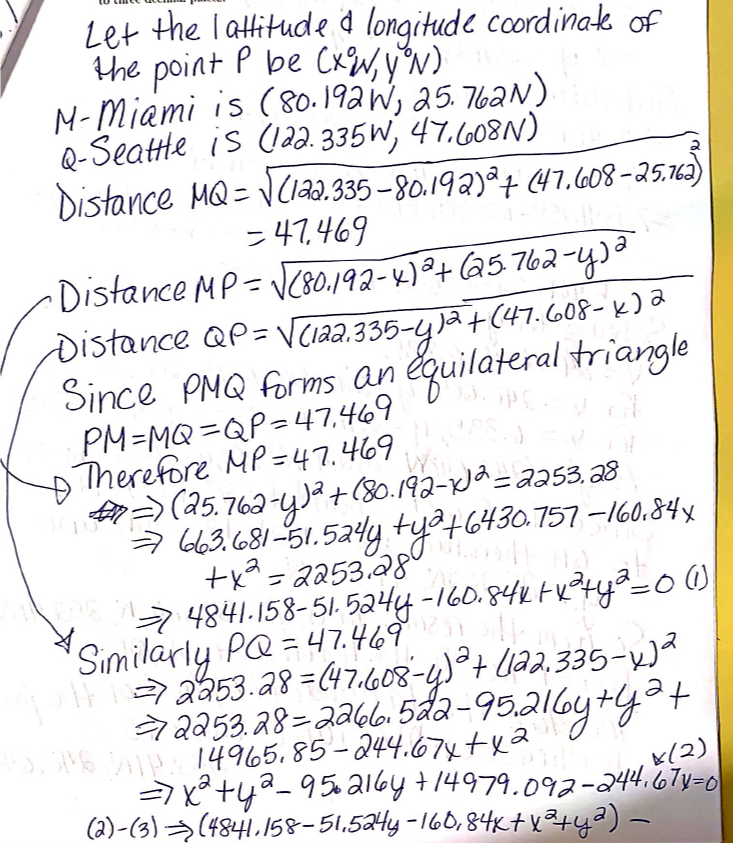 to three decimal places.
Let the lattitude & longitude coordinate of
the point P be (x°W, y°N)
M-Miami is (80.192W, 25.762N)
Q-Seattle is (122.335W, 47.608N)
Distance MQ = √(122.335-80.192)² + (47.608-25.762)²
= 47.469
Distance MP = √(80.192-x)² + (25.762-y)²
Distance QP = √(122.335-y)² + (47.608-x)²
Since PMQ forms an equilateral triangle
PM=MQ=QP=47.469
Therefore MP=47.469
⇒ (25.762-y)² + (80.192-x)² = 2253.28
⇒ 663.681-51.524y+y²+6430.757-160.84x
+x² = 2253.28
⇒ 4841.158-51.524y-160.84x+x²+y²=0 (1)
Similarly PQ = 47.469
⇒ 2253.28 = (47.608-y)² + (122.335-x)²
⇒ 2253.28 = 2266.522-95.216y+y²+
14965.85-244.67x+x²
⇒ x²+y²-95.216y+14979.092-244.67x=0 (2)
(2)-(3) ⇒ (4841.158-51.524y-160.84x+x²+y²) -